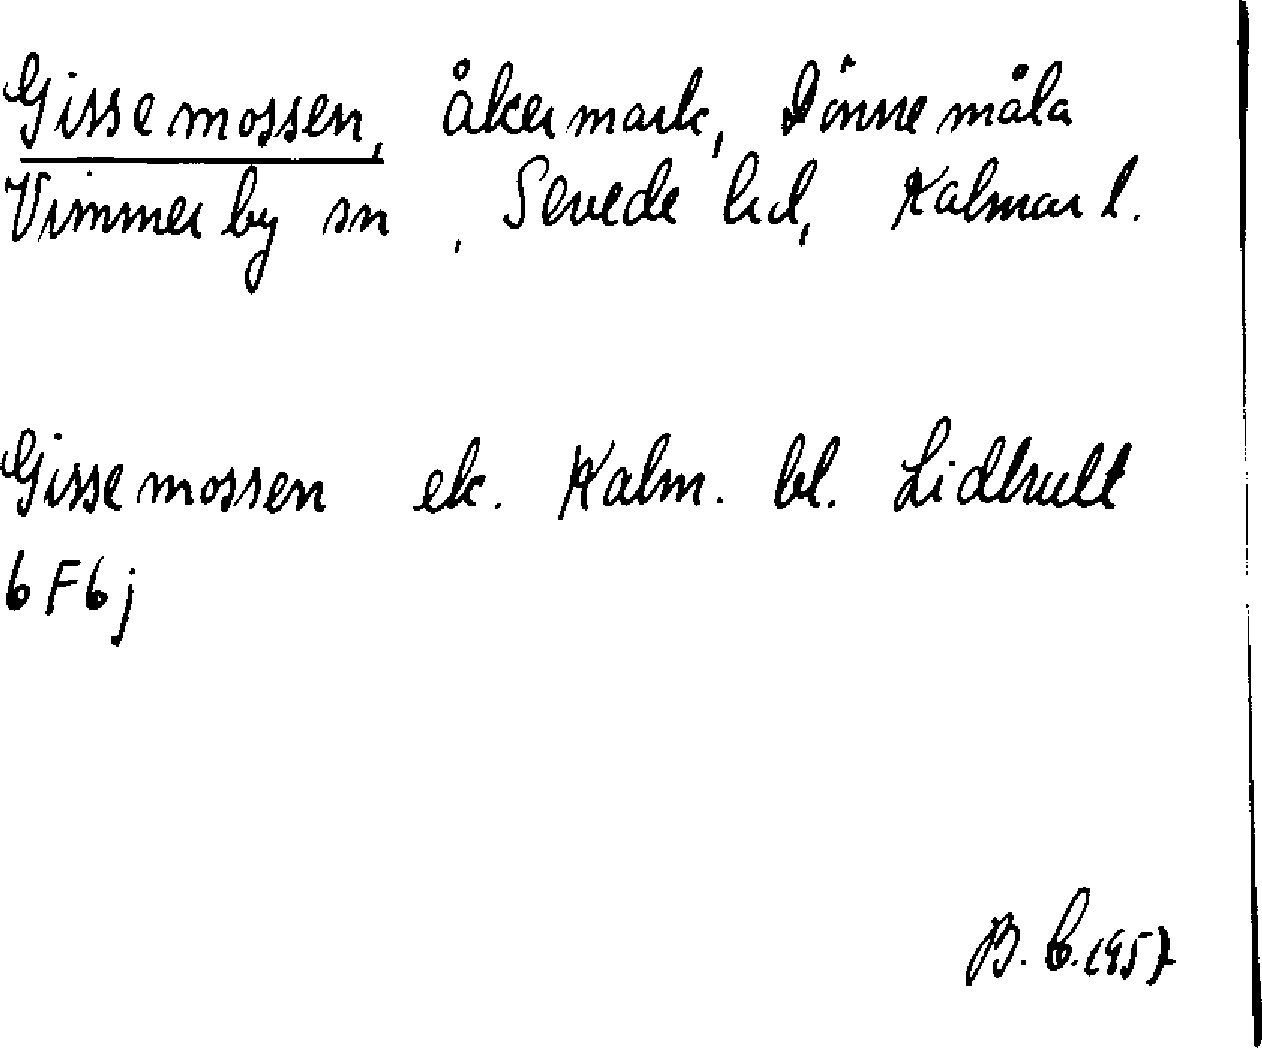 Gissemossen, åkermark, Dönnemåla
Vimmerby sn, Sevede hd, Kalmar l.
Gissemossen ek. Kalm. bl. Lidhult
6F6j
B. E. 1957